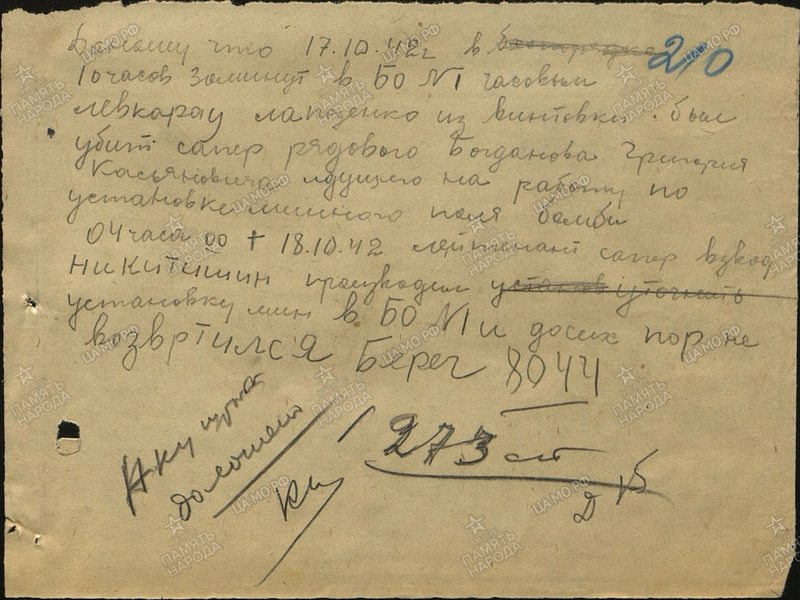 Доношу что 17.10.42г в
210
10 часов 30 минут в БО N1 часовым
из винтовки был
убит сапер рядового Богданова Григория
Касьяновича идущего на работу по
установке минного поля бомби
04 часа 00 + 18.10.42 лейтенант сапер взвод
Никитишин производил установ уточнить
установку мин в БО N1 и досих пор не
возвртился Берег 8044
доложено
273 ст